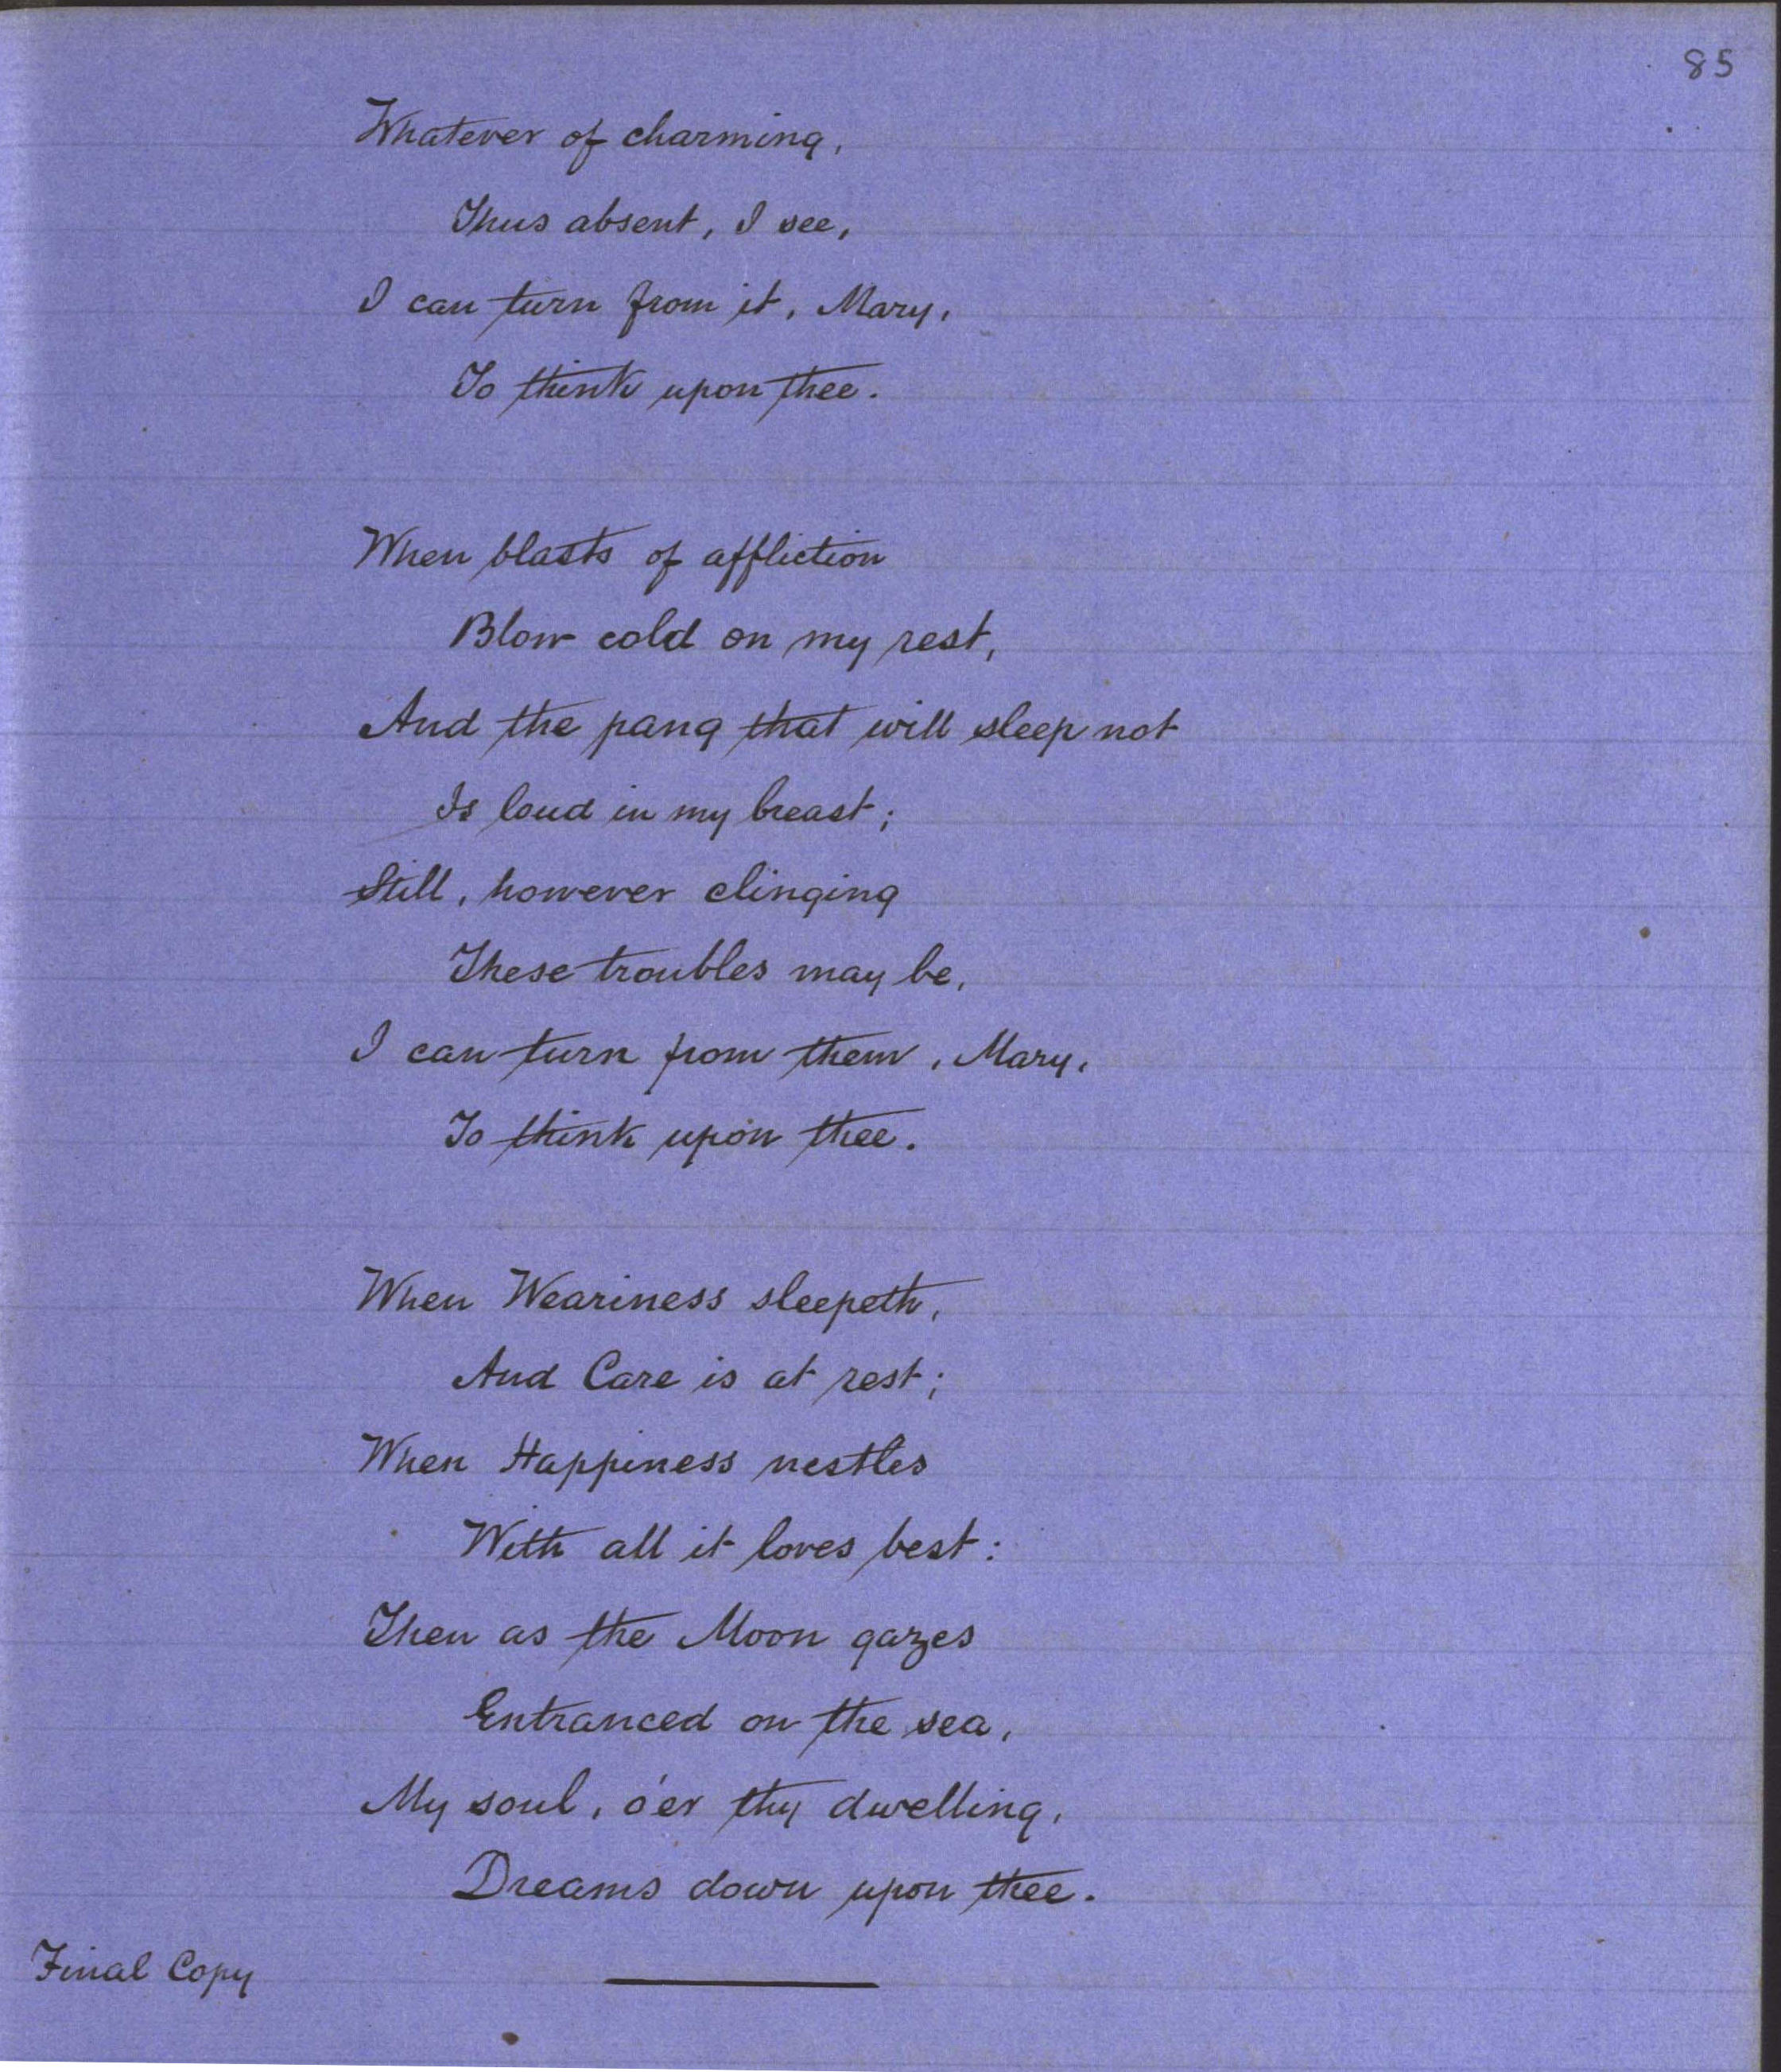 85
Whatever of charming,
Thus absent, I see,
I can turn from it, Mary,
To think upon thee.
When blasts of affliction
Blow cold on my rest,
And the pang that will sleep not
Is loud in my breast;
Still, however clinging
These troubles may be,
I can turn from them, Mary,
To think upon thee.
When Weariness sleepeth,
And Care is at rest;
When Happiness nestles
With all it loves best:
Then as the Moon gazes
Entranced on the sea,
My soul, o'er thy dwelling,
Dreams down upon thee.
Final Copy